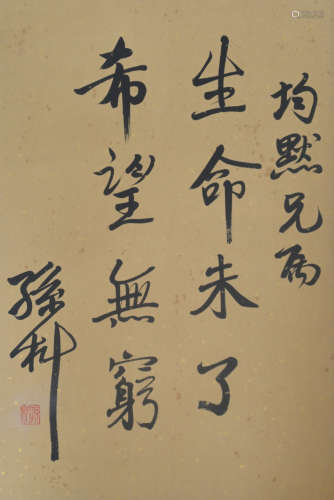 均默兄雨
生命未了
希望無窮
孫科